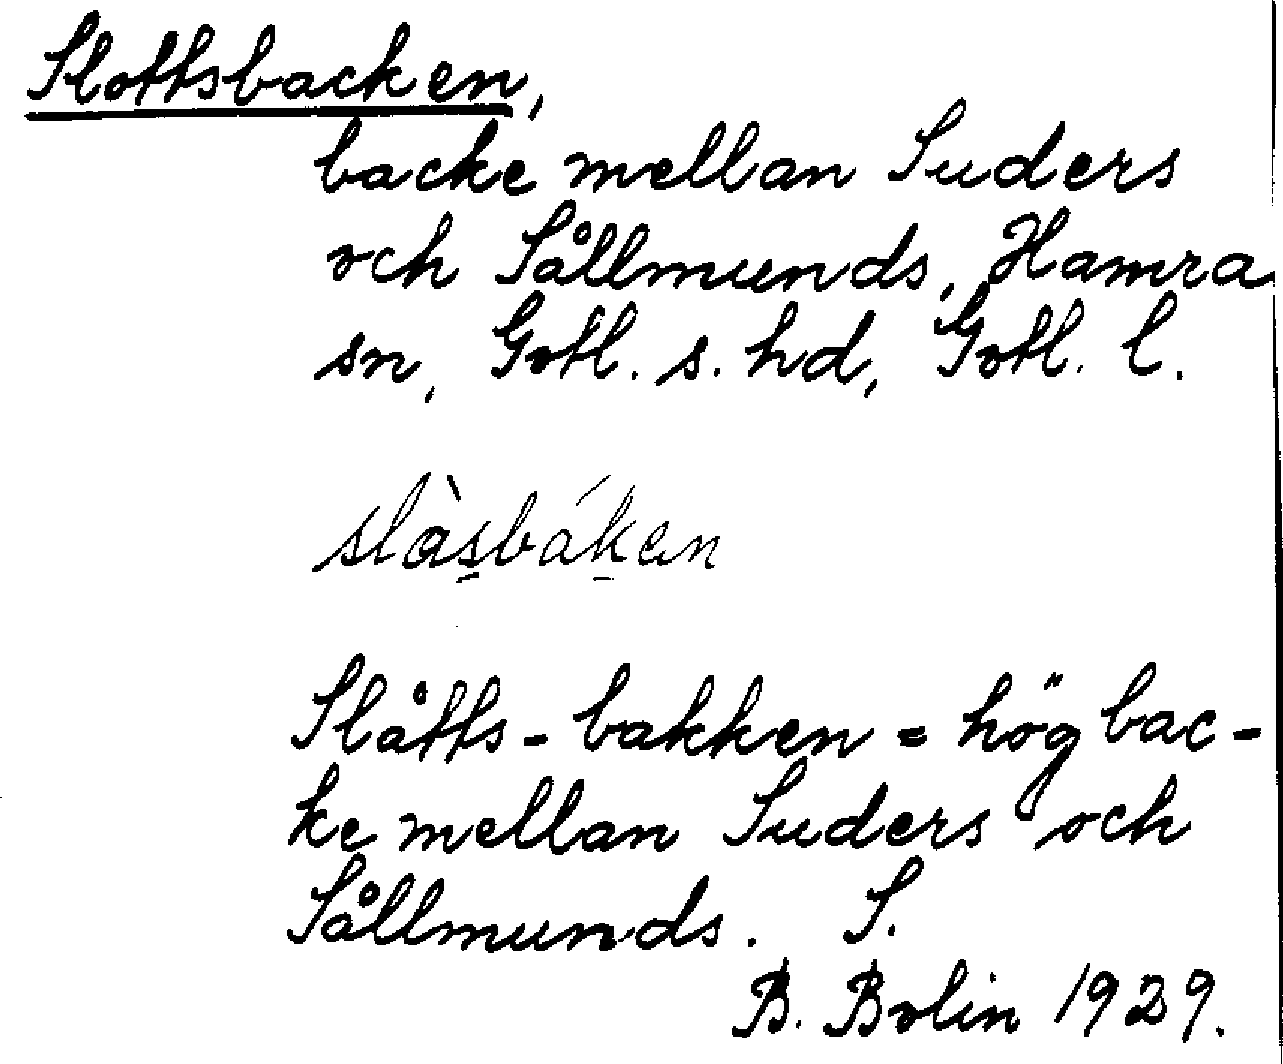 Slottsbacken,
backe mellan Suders
och Sållmunds, Hamra
sn, Gotl. s. hd, Gotl. l.
slàsbáken
Slåtts-bakken = hög bac-
ke mellan Suders och
Sållmunds. S.
B. Bolin 1929.